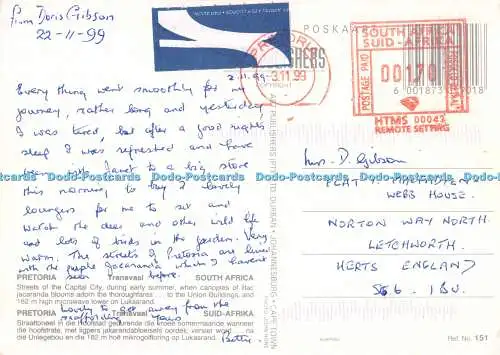 from Doris Gibson
22-11-99
POSKAA
PRETORIA
-3.11.99
SOUTH AFRICA
SUID-AFRIKA
POSTAGE PAID
00170
HTMS 00043
REMOTE SETTING
6 001873 9018
2.11.99
Every thing went smoothly for my
journey, rather long and yesterday
I was tired, but after a good nights
sleep I was refreshed and have
been with Janet to a big store
this morning to buy 2 lovely
loungers for me to sit and
watch the deer and other wild life
and lots of birds in the garden. Very
warm. The streets of Pretoria are lined
with the purple Jacaranda which I havent
seen before.
Lovely to be away from the
Yours
Betty
Mrs. D. Gibson
FLAT
WEBB HOUSE.
NORTON WAY NORTH.
LETCHWORTH.
HERTS ENGLAND
SG6. 1BU.
Dodo-Postcards Dodo-Postcards Dodo-Postcards Dodo-Postcards
PRETORIA Transvaal SOUTH AFRICA
Streets of the Capital City, during early summer, when canopies of lilac
jacaranda blooms adorn the thoroughfares to the Union Buildings, and
182 m high microwave tower on Lukasrand.
PRETORIA Transvaal SUID-AFRIKA
Straattoneel in die Hoofstad gedurende die kroeë somermaande wanneer
die hoofstrate, met ligpers jakarandabloeisels oordek, vernaf word
die Uniegebou en die 182 m hoë mikrogolftoring op Lukasrand.
DURBAN • JOHANNESBURG • CAPE TOWN
Ref. No. 151